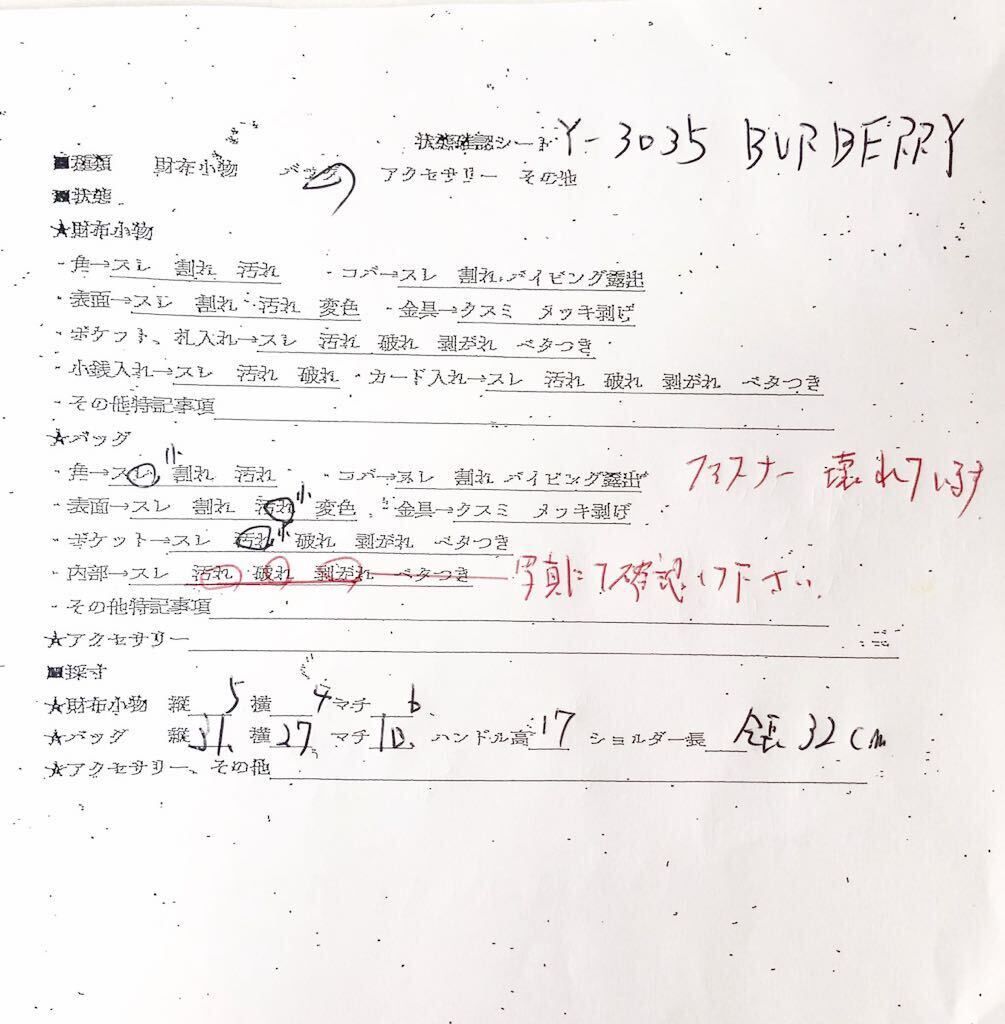 状態確認シート Y-3035 BURBERRY
■種類 財布小物 バッグ アクセサリー その他
■状態
★財布小物
・角→スレ 割れ 汚れ ・コバ→スレ 割れ パイピング露出
・表面→スレ 割れ 汚れ 変色 ・金具→クスミ メッキ剥げ
・ポケット、札入れ→スレ 汚れ 破れ 剥がれ ベタつき
・小銭入れ→スレ 汚れ 破れ ・カード入れ→スレ 汚れ 破れ 剥がれ ベタつき
・その他特記事項
★バッグ
・角→スレ小 割れ 汚れ ・コバ→スレ 割れ パイピング露出 ファスナー 壊れています
・表面→スレ 割れ 汚れ小 変色 ・金具→クスミ メッキ剥げ
・ポケット→スレ 汚れ小 破れ 剥がれ ベタつき
・内部→スレ 汚れ 破れ 剥がれ ベタつき 写真にて確認して下さい
・その他特記事項
★アクセサリー
■採寸
★財布小物 縦 5 横 4 マチ 6
★バッグ 縦 31 横 27 マチ 10 ハンドル高 17 ショルダー長 全長 32cm
★アクセサリー、その他